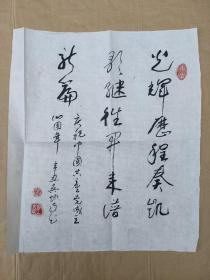 光辉歷程奏凯
歌继往开来谱
新篇
庆祝中国共产党成立
100周年 辛丑